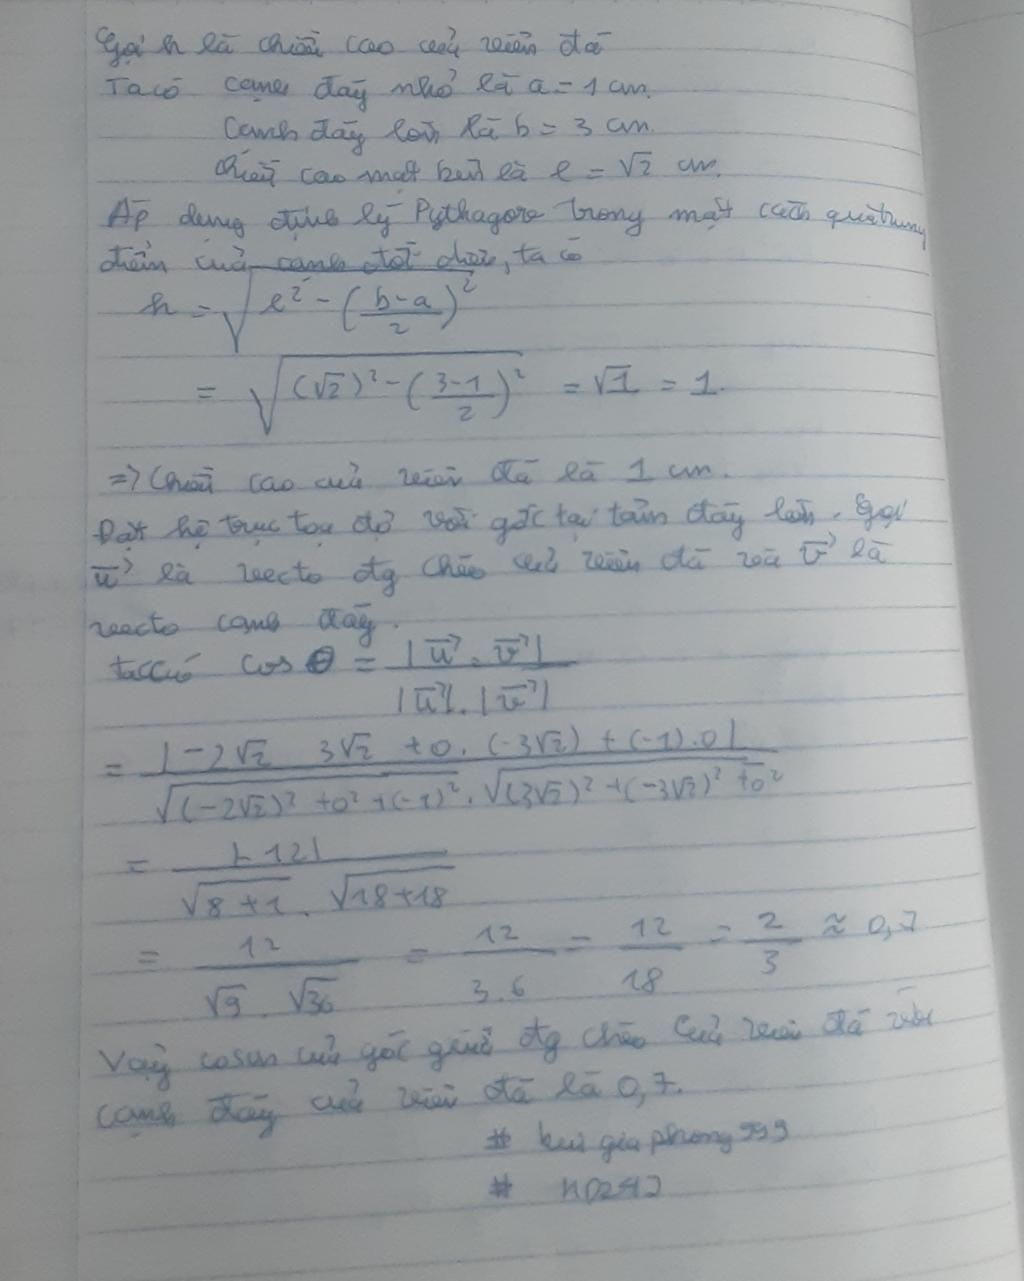 Gọi h là chiều cao của viên đá
Ta có cạnh đáy nhỏ là a = 1 cm.
Cạnh đáy lớn là b = 3 cm.
Chiều cao mặt bên là l = √2 cm.
Áp dụng định lý Pythagore trong mặt cắt qua trung
điểm của cạnh đối diện, ta có
h = √(l² - ((b-a)/2)²)
= √((√2)² - ((3-1)/2)²) = √1 = 1.
=> Chiều cao của viên đá là 1 cm.
Đặt hệ trục tọa độ với gốc tại tâm đáy lớn. Gọi
u⃗ là vecto đg chéo của viên đá và v⃗ là
vecto cạnh đáy.
ta có cos θ = |u⃗ . v⃗| / |u⃗| . |v⃗|
= |-2√2 3√2 + 0. (-3√2) + (-1).0| / √((-2√2)² + 0² + (-1)²) . √((3√2)² + (-3√2)² + 0²)
= |-12| / √(8+1) . √(18+18)
= 12 / √9 . √36 = 12 / 3.6 = 12/18 = 2/3 ≈ 0,7
Vậy cosin của góc giữa đg chéo của viên đá với
cạnh đáy của viên đá là 0,7.
# bui gia phong 999
#